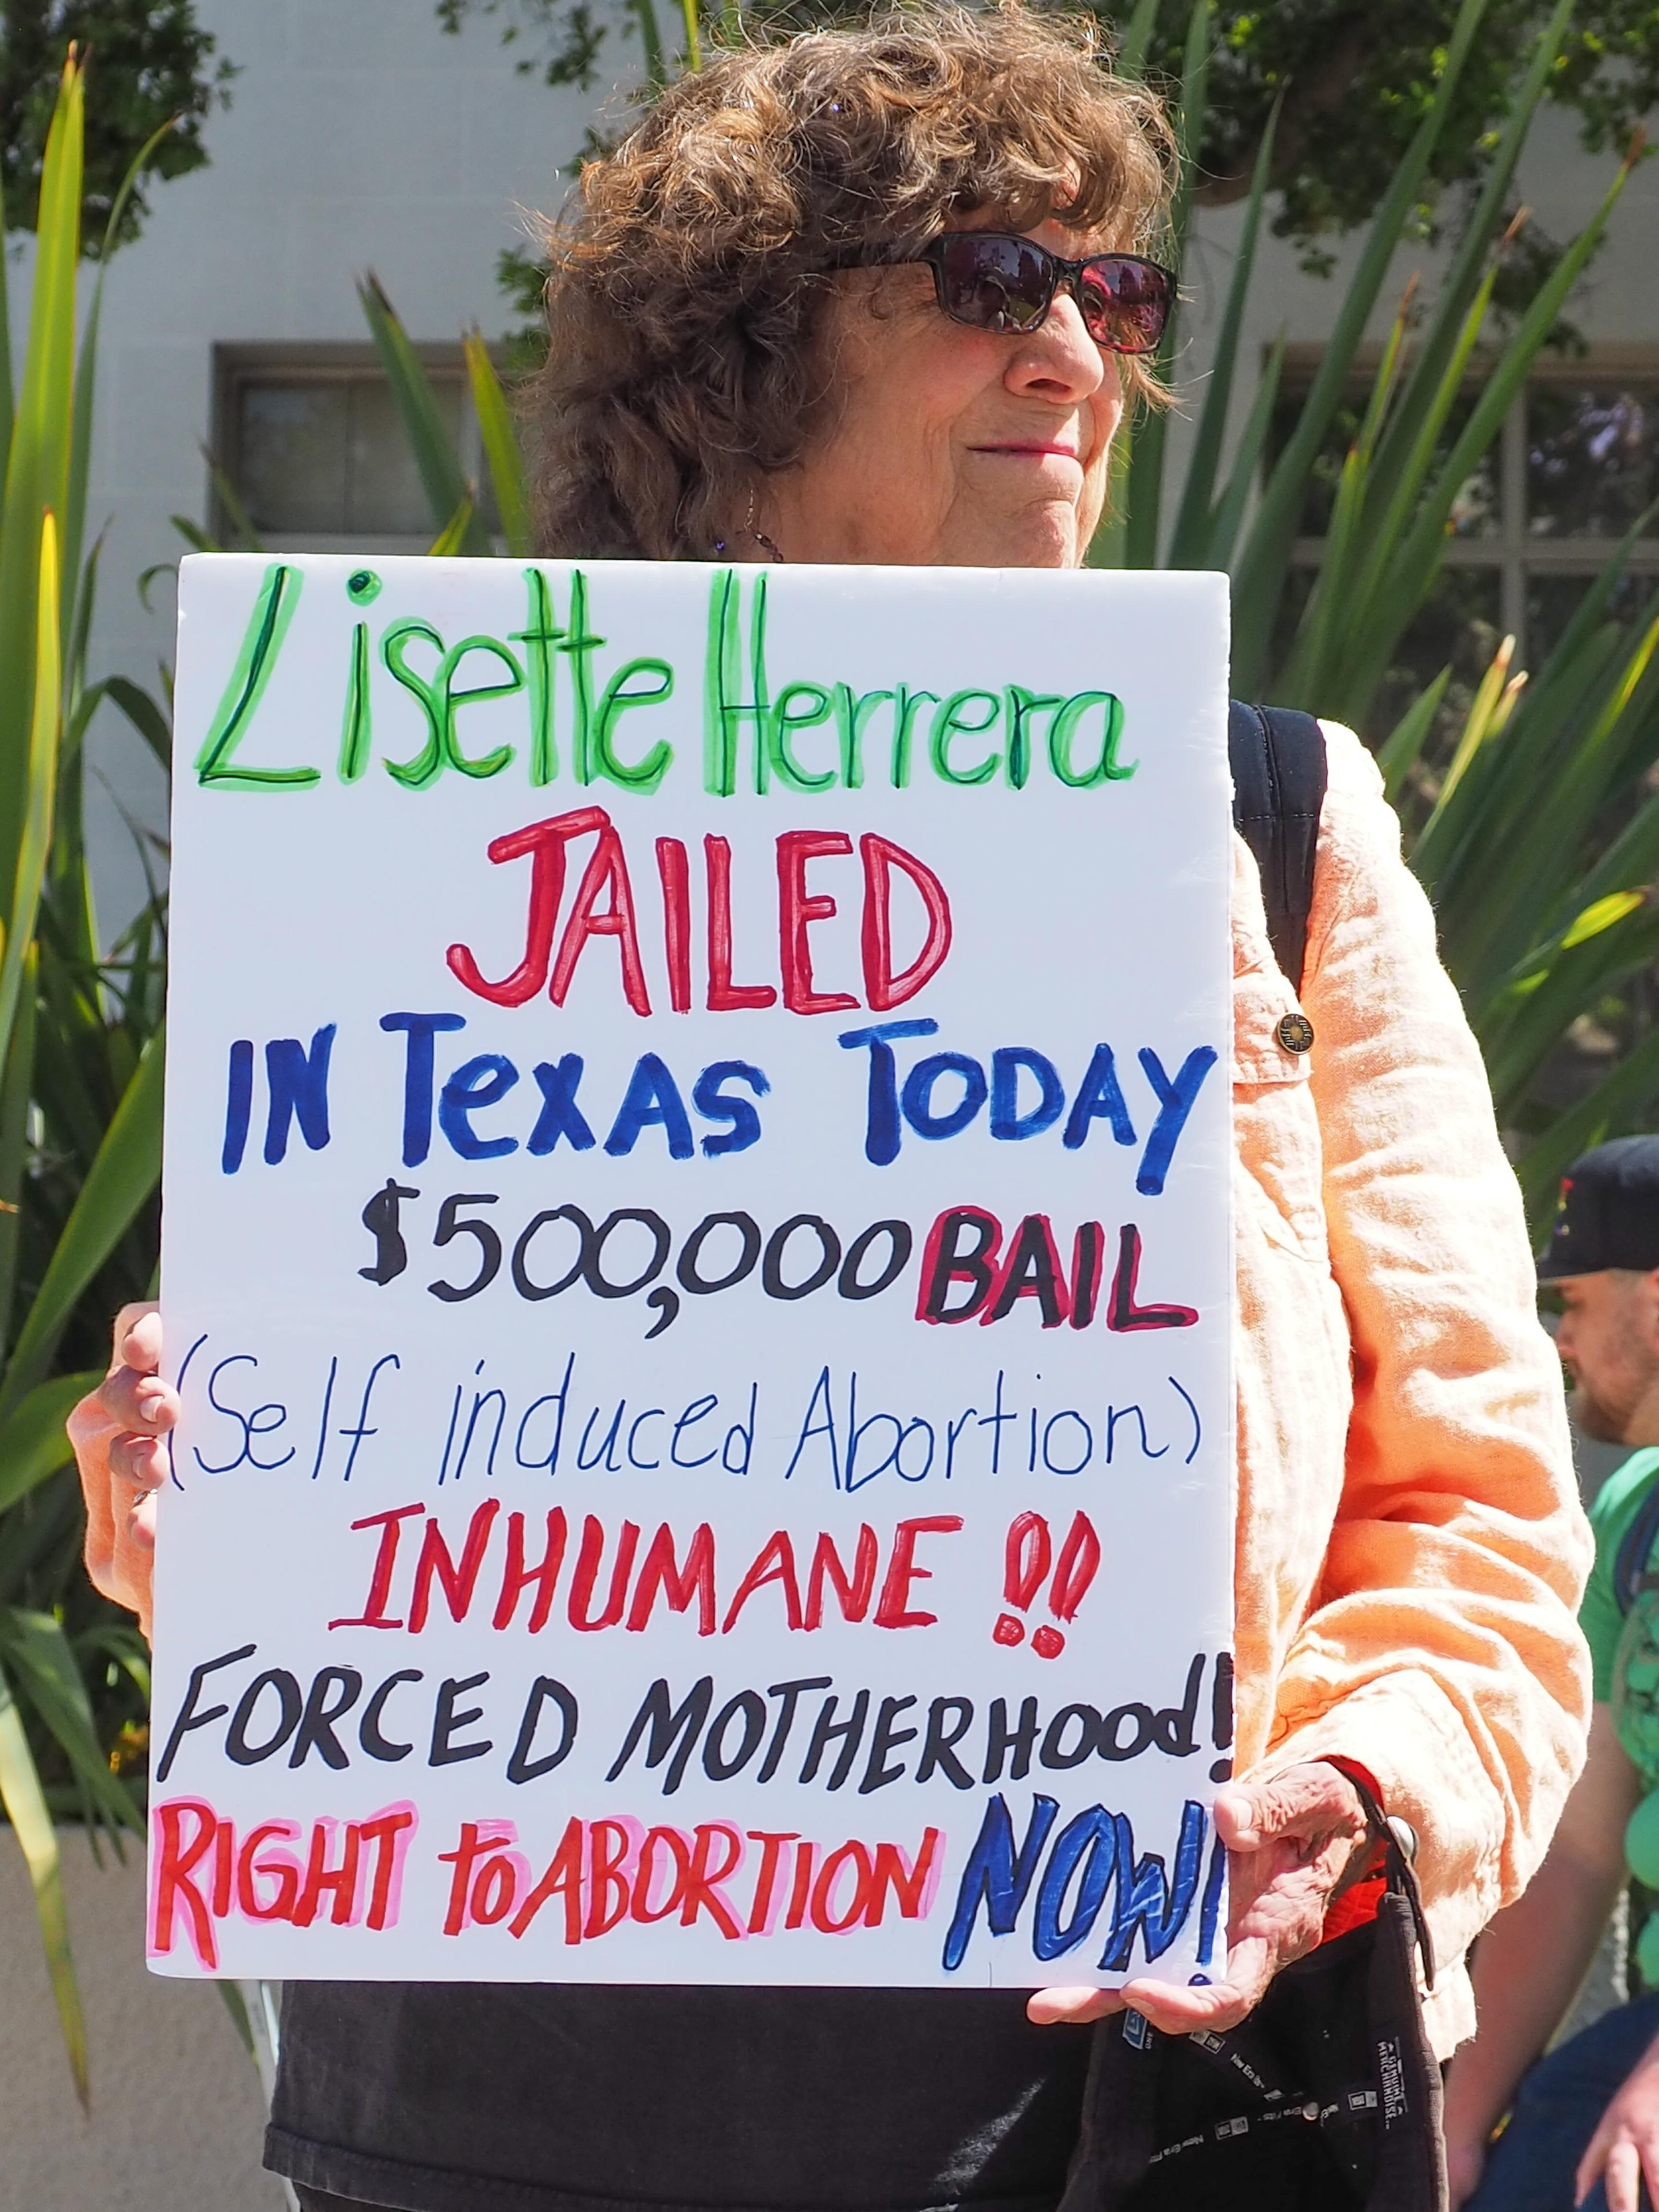 Lisette Herrera
JAILED
IN TexAS TODAY
$500,000 BAIL
(Self induced Abortion)
INHUMANE !!
FORCED MOTHERHOOd!
RIGHT to ABORTION NOW!
GENUINE
MERCHANDISE
New Era